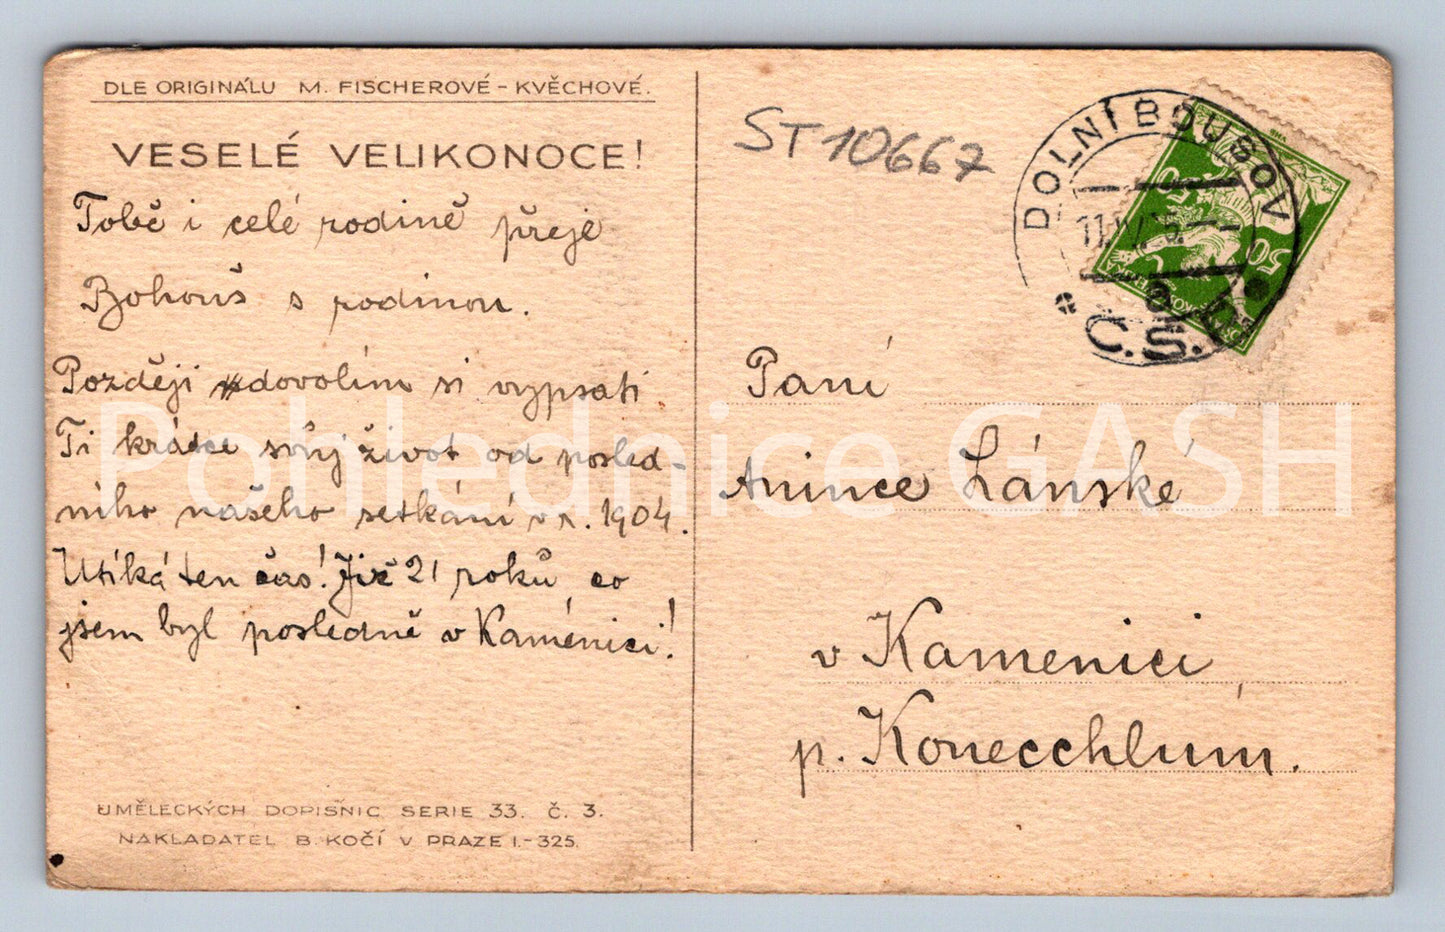 DLE ORIGINÁLU M. FISCHEROVÉ - KVĚCHOVÉ.
VESELÉ VELIKONOCE!
Tobě i celé rodině přeje
Bohouš s rodinou.
Později dovolím si vypsati
Ti krátce svůj život od posled-
ního našeho setkání v r. 1904.
Utíká ten čas! Již 21 roků, co
jsem byl posledně v Kaménici!
UMĚLECKÝCH DOPISNIC SERIE 33. Č. 3.
NAKLADATEL B. KOČÍ V PRAZE I.-325.
ST10667
DOLNÍ BOUSOV
11.IV.
Č.S.
50
50
Paní
Anince Lánské
v Kamenici
p. Konecchlum.
Pohlednice GASH